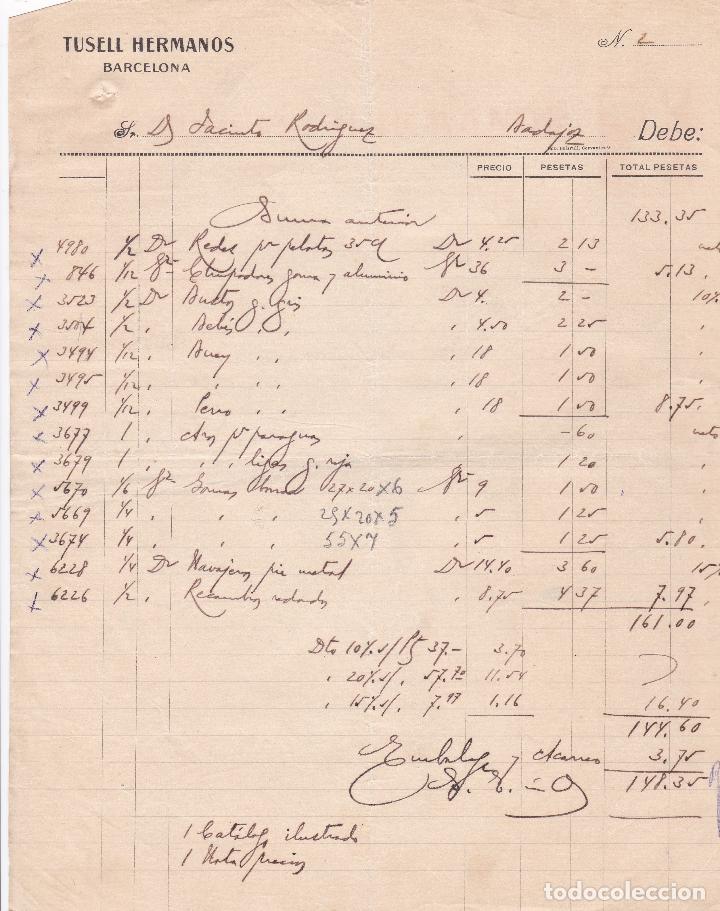 TUSELL HERMANOS
BARCELONA
N. 2
Sr. D Jacinto Rodriguez Badajoz Debe:
PRECIO PESETAS TOTAL PESETAS
Suma anterior 133.35
x 4980 1/2 Dna Redes pa pelotas 35 Dna 4.25 2 13 neto
x 846 1/12 Gra goma y aluminio Gra 36 3 - 5.13 "
x 3523 1/2 Dna Bustos g. gris Dna 4. 2 - 10%
x 3504 1/2 " " " " 4.50 2 25 "
x 3494 1/12 " Buey " " " 18 1 50 "
x 3495 1/12 " " " " " 18 1 50 "
x 3499 1/12 " Perro " " " 18 1 50 8.75 "
x 3677 1 " Aros pa paraguas " - 60 neto
x 3679 1 " " " ligas g. roja 1 20 "
x 5670 1/6 Gra Gomas borrar 27x20x6 Gra 9 1 50 "
x 5669 1/4 " " " 29x20x5 " 5 1 25 "
x 3674 1/4 " " " 55x7 " 5 1 25 5.80 "
x 6228 1/4 Dna Navajeros pie metal Dna 14.40 3 60 15%
x 6226 1/2 " Recambios redondos " 8.75 4 37 7.97 "
161.00
Dto 10%. s/ Pts 37.- 3.70
" 20%. s/. 57.70 11.54
" 15%. s/. 7.97 1.16 16.40
144.60
Embalage y Acarreo 3.75
S. E. ú O 148.35
1 Catálogo ilustrado
1 Nota precios
todocoleccion